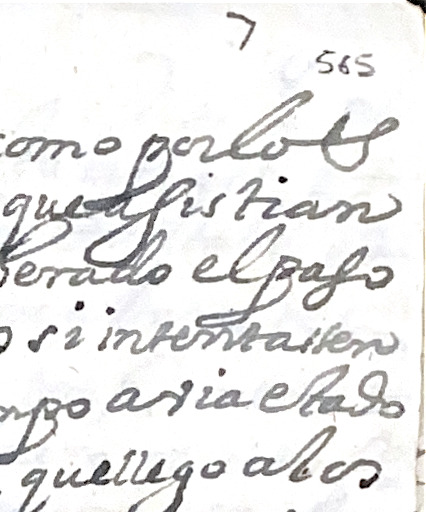 7
565
como por los
que asistian
berado el paso
o si intentassen
mpo avia estado
que llego a los